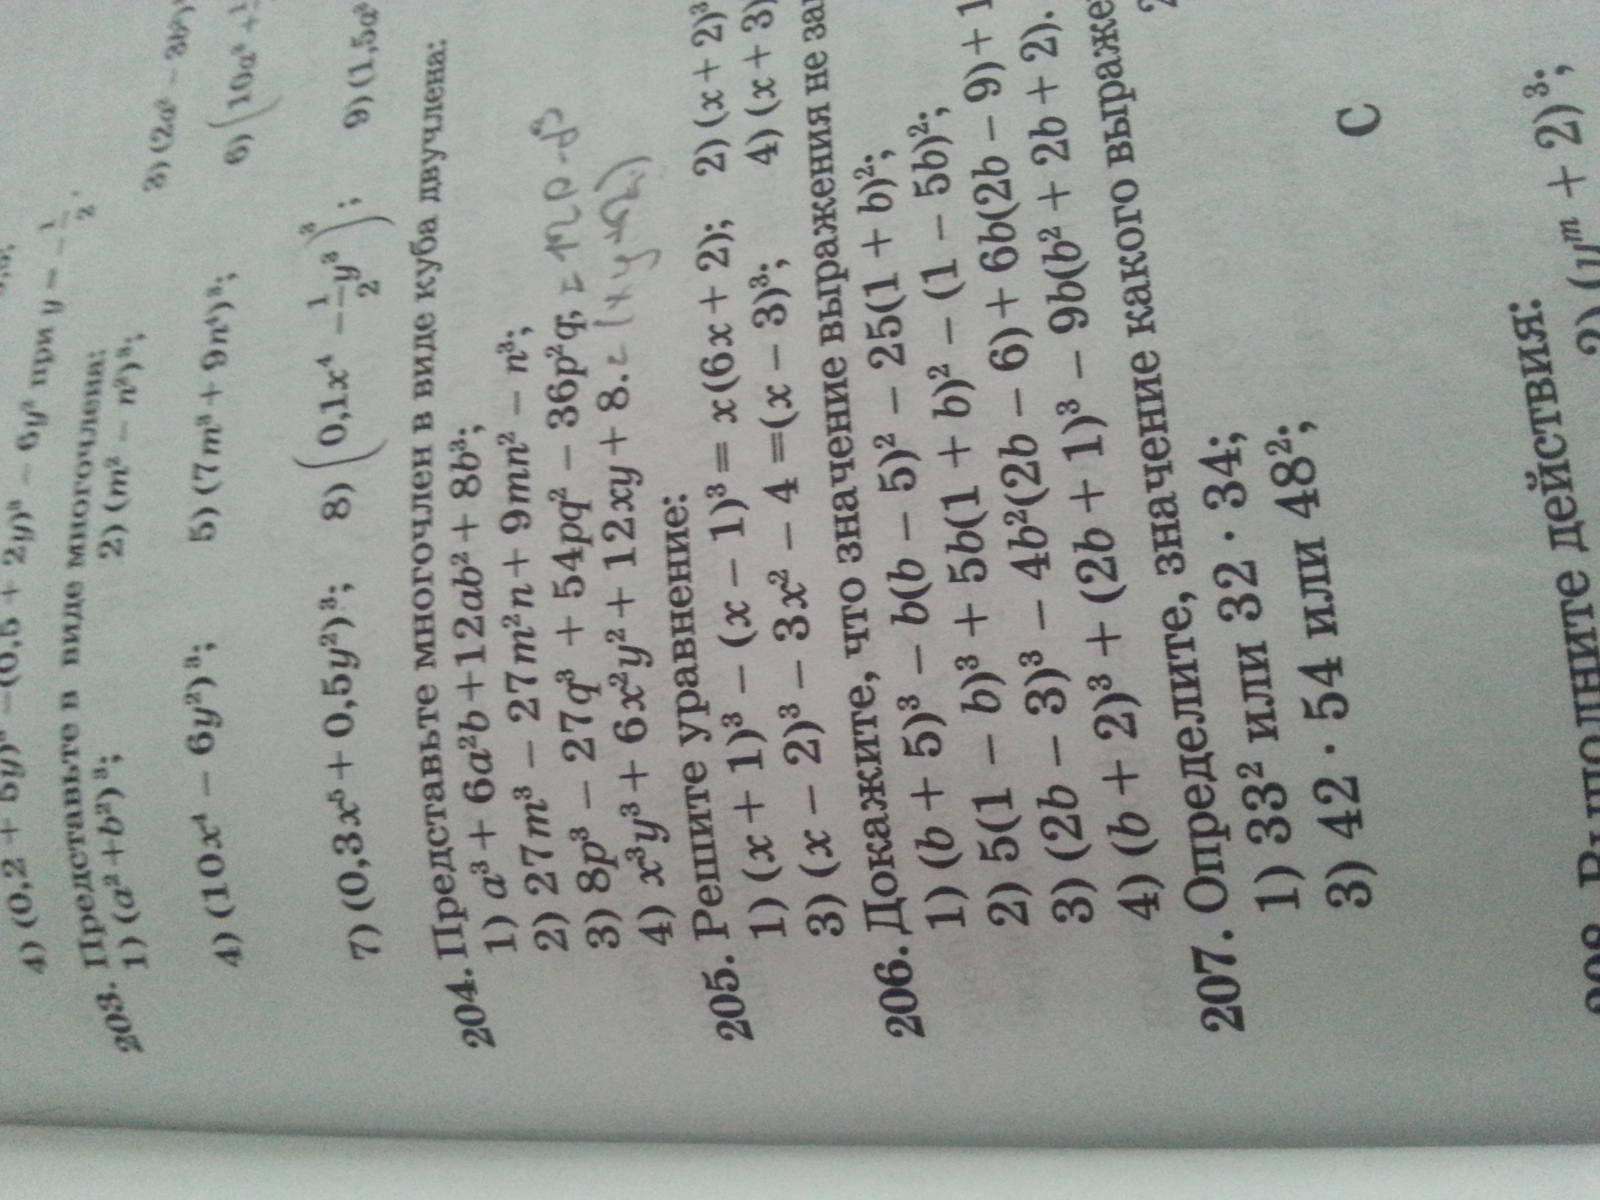 4) (0,2 + 5y)³ − (0,5 + 2y)³ − 6y³ при y = − 1/2.
203. Представьте в виде многочлена:
1) (a² + b²)³; 2) (m² − n²)³; 3) (2a³ − 3b²)
4) (10x⁴ − 6y²)³; 5) (7m³ + 9n⁴)³; 6) (10a³ +
7) (0,3x⁵ + 0,5y²)³; 8) (0,1x⁴ − 1/2 y³)³; 9) (1,5a³
204. Представьте многочлен в виде куба двучлена:
1) a³ + 6a²b + 12ab² + 8b³;
2) 27m³ − 27m²n + 9mn² − n³;
3) 8p³ − 27q³ + 54pq² − 36p²q;
4) x³y³ + 6x²y² + 12xy + 8.
205. Решите уравнение:
1) (x + 1)³ − (x − 1)³ = x(6x + 2); 2) (x + 2)³
3) (x − 2)³ − 3x² − 4 =(x − 3)³; 4) (x + 3)
206. Докажите, что значение выражения не за
1) (b + 5)³ − b(b − 5)² − 25(1 + b)²;
2) 5(1 − b)³ + 5b(1 + b)² − (1 − 5b)²;
3) (2b − 3)³ − 4b²(2b − 6) + 6b(2b − 9) + 1
4) (b + 2)³ + (2b + 1)³ − 9b(b² + 2b + 2).
207. Определите, значение какого выраже
1) 33² или 32 · 34; 2
3) 42 · 54 или 48²;
С
208. Выполните действия:
2) (yᵐ + 2)³;